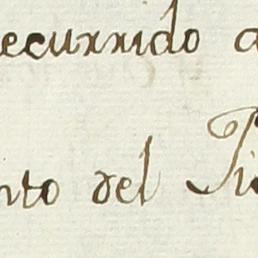 ecurrido a
nto del Ti